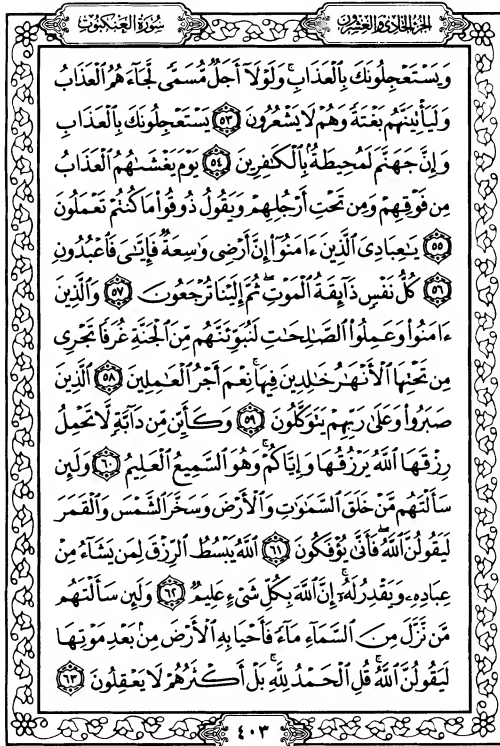 الجزء الحادي والعشرون
سورة العنكبوت
وَيَسْتَعْجِلُونَكَ بِٱلْعَذَابِ وَلَوْلَآ أَجَلٌ مُّسَمًّى لَّجَآءَهُمُ ٱلْعَذَابُ
وَلَيَأْتِيَنَّهُم بَغْتَةً وَهُمْ لَا يَشْعُرُونَ ٥٣ يَسْتَعْجِلُونَكَ بِٱلْعَذَابِ
وَإِنَّ جَهَنَّمَ لَمُحِيطَةٌۢ بِٱلْكَٰفِرِينَ ٥٤ يَوْمَ يَغْشَىٰهُمُ ٱلْعَذَابُ
مِن فَوْقِهِمْ وَمِن تَحْتِ أَرْجُلِهِمْ وَيَقُولُ ذُوقُوا۟ مَا كُنتُمْ تَعْمَلُونَ
٥٥ يَٰعِبَادِىَ ٱلَّذِينَ ءَامَنُوٓا۟ إِنَّ أَرْضِى وَٰسِعَةٌ فَإِيَّٰىَ فَٱعْبُدُونِ
٥٦ كُلُّ نَفْسٍ ذَآئِقَةُ ٱلْمَوْتِ ثُمَّ إِلَيْنَا تُرْجَعُونَ ٥٧ وَٱلَّذِينَ
ءَامَنُوا۟ وَعَمِلُوا۟ ٱلصَّٰلِحَٰتِ لَنُبَوِّئَنَّهُم مِّنَ ٱلْجَنَّةِ غُرَفًا تَجْرِى
مِن تَحْتِهَا ٱلْأَنْهَٰرُ خَٰلِدِينَ فِيهَا نِعْمَ أَجْرُ ٱلْعَٰمِلِينَ ٥٨ ٱلَّذِينَ
صَبَرُوا۟ وَعَلَىٰ رَبِّهِمْ يَتَوَكَّلُونَ ٥٩ وَكَأَيِّن مِّن دَآبَّةٍ لَّا تَحْمِلُ
رِزْقَهَا ٱللَّهُ يَرْزُقُهَا وَإِيَّاكُمْ وَهُوَ ٱلسَّمِيعُ ٱلْعَلِيمُ ٦٠ وَلَئِن
سَأَلْتَهُم مَّنْ خَلَقَ ٱلسَّمَٰوَٰتِ وَٱلْأَرْضَ وَسَخَّرَ ٱلشَّمْسَ وَٱلْقَمَرَ
لَيَقُولُنَّ ٱللَّهُ فَأَنَّىٰ يُؤْفَكُونَ ٦١ ٱللَّهُ يَبْسُطُ ٱلرِّزْقَ لِمَن يَشَآءُ مِنْ
عِبَادِهِۦ وَيَقْدِرُ لَهُۥٓ إِنَّ ٱللَّهَ بِكُلِّ شَىْءٍ عَلِيمٌ ٦٢ وَلَئِن سَأَلْتَهُم
مَّن نَّزَّلَ مِنَ ٱلسَّمَآءِ مَآءً فَأَحْيَا بِهِ ٱلْأَرْضَ مِنۢ بَعْدِ مَوْتِهَا
لَيَقُولُنَّ ٱللَّهُ قُلِ ٱلْحَمْدُ لِلَّهِ بَلْ أَكْثَرُهُمْ لَا يَعْقِلُونَ ٦٣
٤٠٣